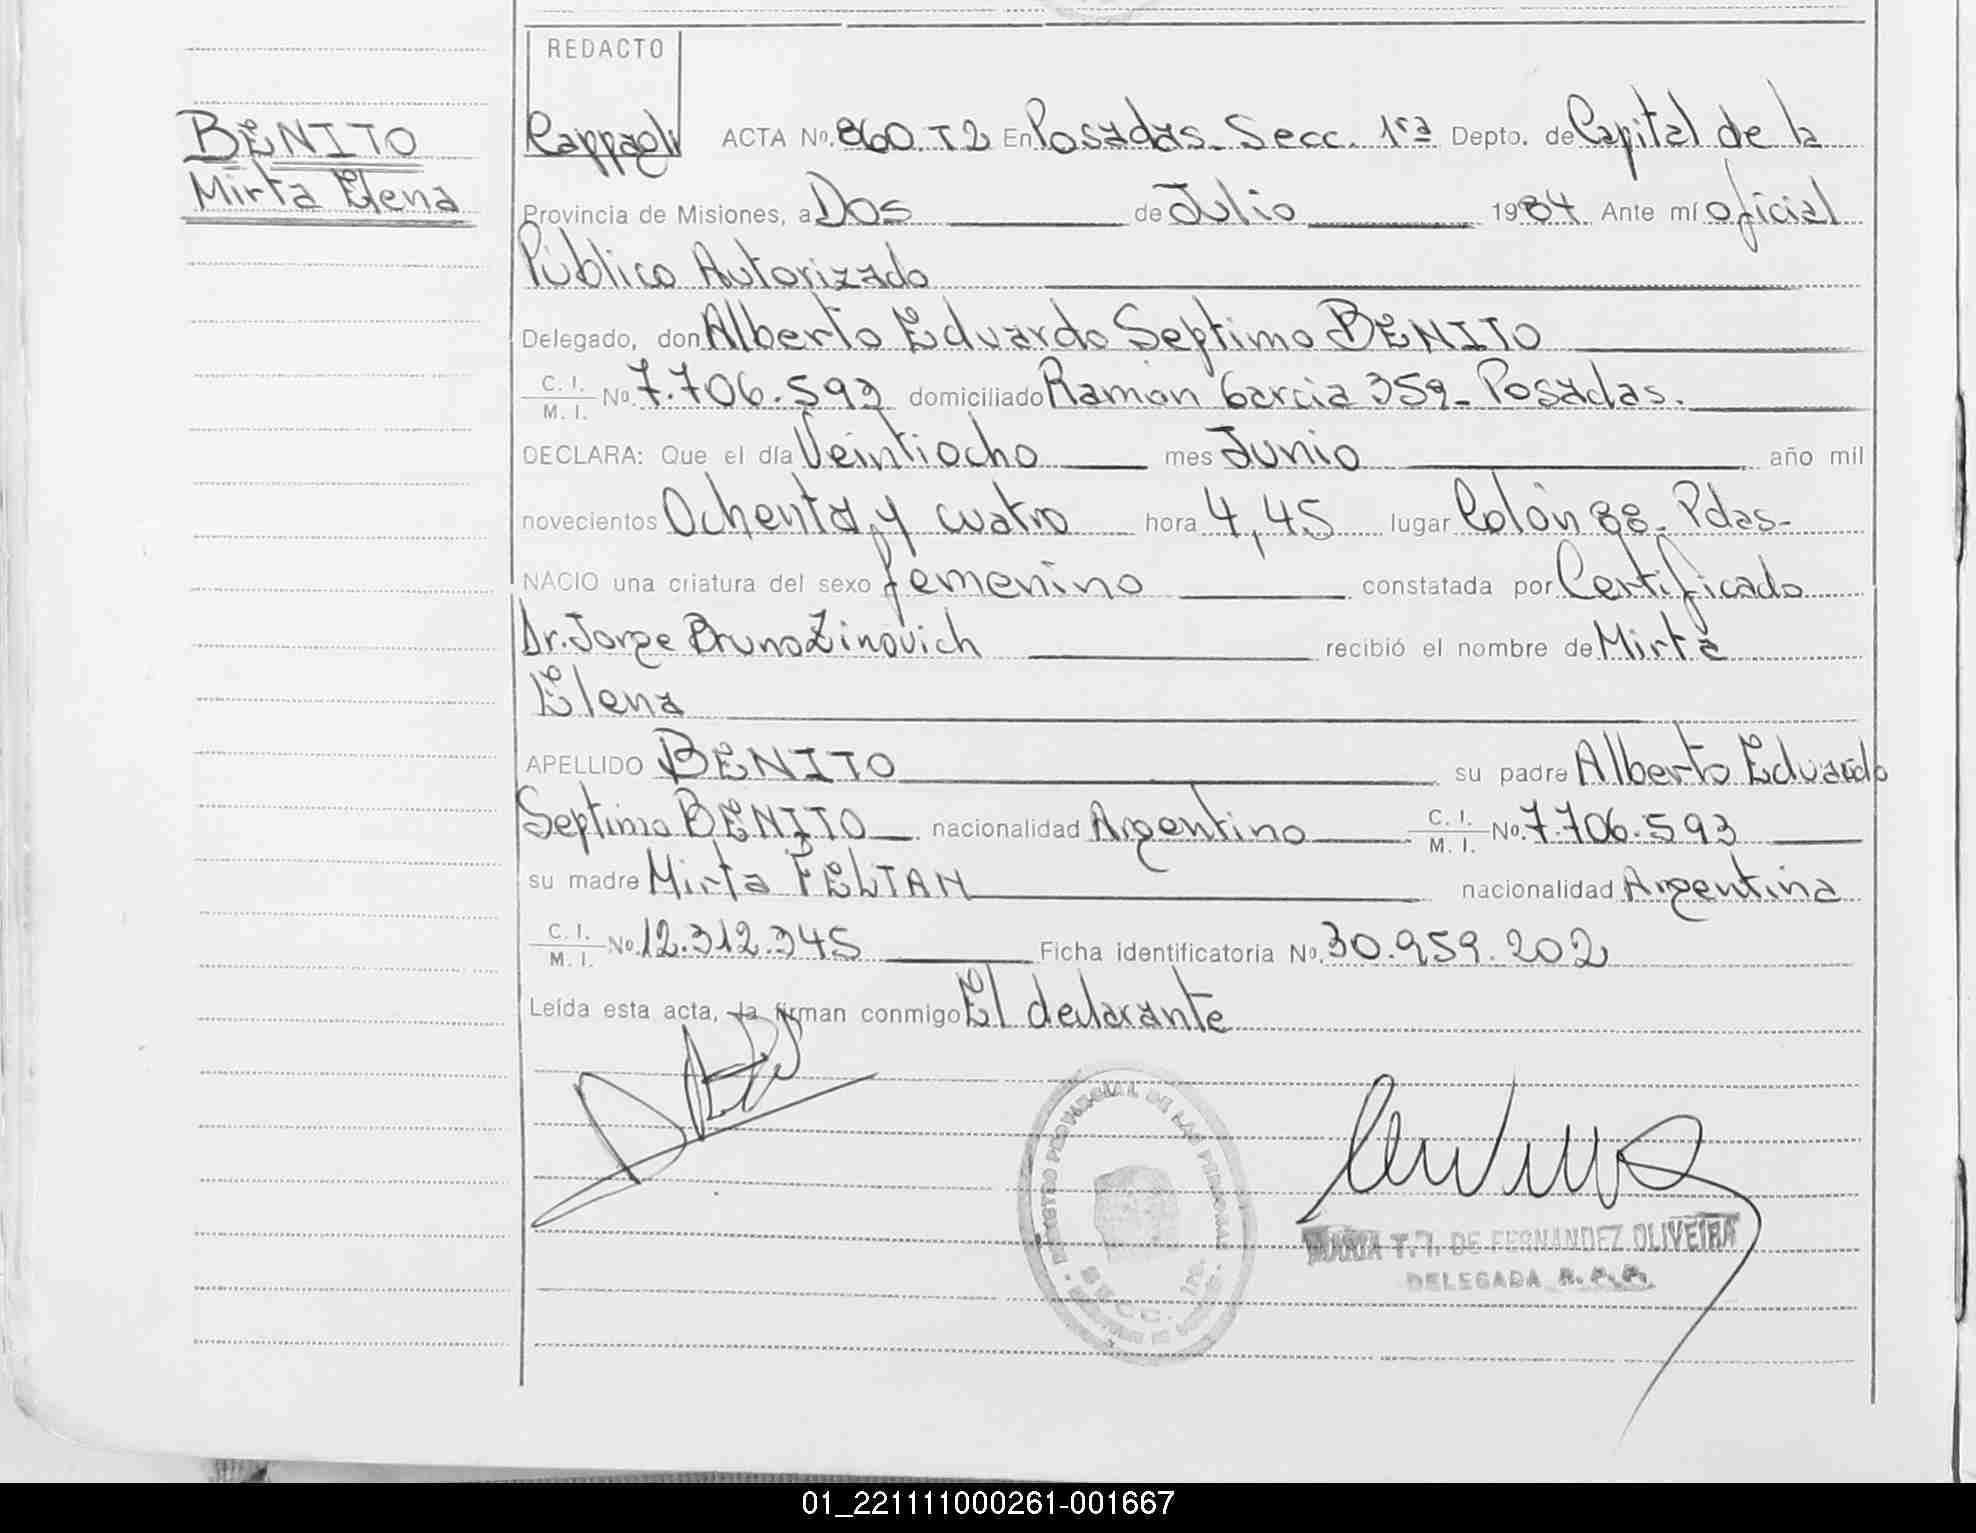 REDACTO
BENITO
Mirta Elena
Rappagli ACTA Nº. 860. T2 En Posadas. Secc. 1ra Depto. de Capital de la
Provincia de Misiones, a Dos de Julio 1984 Ante mí oficial
Público Autorizado
Delegado, don Alberto Eduardo Septimo BENITO
C. I. / M. I. Nº. 7.706.593 domiciliado Ramón Garcia 359 - Posadas.
DECLARA: Que el día Veintiocho mes Junio año mil
novecientos Ochenta y cuatro hora 4,45 lugar Colón 88 - Pdas-
NACIO una criatura del sexo femenino constatada por Certificado
Dr. Jorge Bruno Zinovich recibió el nombre de Mirta
Elena
APELLIDO BENITO su padre Alberto Eduardo
Septimo BENITO nacionalidad Argentino C. I. / M. I. Nº. 7.706.593
su madre Mirta FELTAN nacionalidad Argentina
C. I. / M. I. Nº. 12.312.345 Ficha identificatoria Nº. 30.959.202
Leída esta acta, la firman conmigo El declarante
REGISTRO PROVINCIAL DE LAS PERSONAS
SECC. 1RA.
MARIA T. T. DE FERNANDEZ OLIVEIRA
DELEGADA R. P. P.
01_221111000261-001667